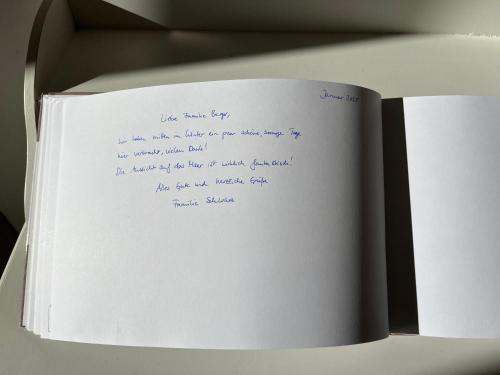 Januar
Liebe Familie Berger,
wir haben mitten im Winter ein paar schöne, sonnige Tage
hier verbracht, vielen Dank!
Die Aussicht auf das Meer ist wirklich fantastisch!
Alles Gute und herzliche Grüße
Familie